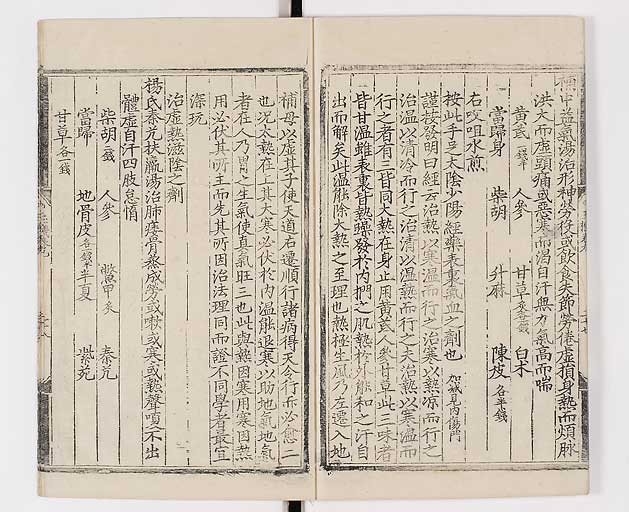 補中益氣湯治形神勞役或飲食失節勞倦虛損身熱而煩脉
洪大而虛頭痛或惡寒而渴自汗無力氣高而喘
黃芪一錢半 人參 甘草炙各一錢 白朮
當歸身 柴胡 升麻 陳皮各半錢
右㕮咀水煎
按此手足太陰少陽經藥表裏氣血之劑也 加減見內傷門
謹按發明曰經云治熱以寒溫而行之治寒以熱凉而行之
治溫以清冷而行之治清以溫熱而行之夫治熱以寒溫而
行之者有三皆同大熱在身止用黃芪人參甘草此三味者
皆甘溫雖表裏皆熱躁發於內捫之肌熱於外能和之汗自
出而解矣此溫能除大熱之至理也熱極生風乃左遷入地
補母以虛其子使天道右遷順行諸病得天令行亦必愈二
也况大熱在上其大寒必伏於內溫能退寒以助地氣地氣
者在人乃胃之生氣使真氣旺三也此與熱因寒用寒因熱
用必伏其所主而先其所因治法理同而證不同學者最宜
深玩
治虛熱滋陰之劑
楊氏秦艽扶羸湯治肺痿骨蒸成勞或嗽或寒或熱聲嗄不出
體虛自汗四肢怠惰
柴胡二錢 人參 鱉甲炙 秦艽
當歸 地骨皮各一錢半 半夏 紫菀
甘草各一錢